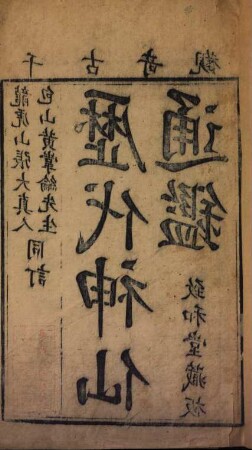 千古奇觀
龍虎山張大真人
包山黃掌綸先生
同訂
歷代神仙
通鑑
致和堂藏板